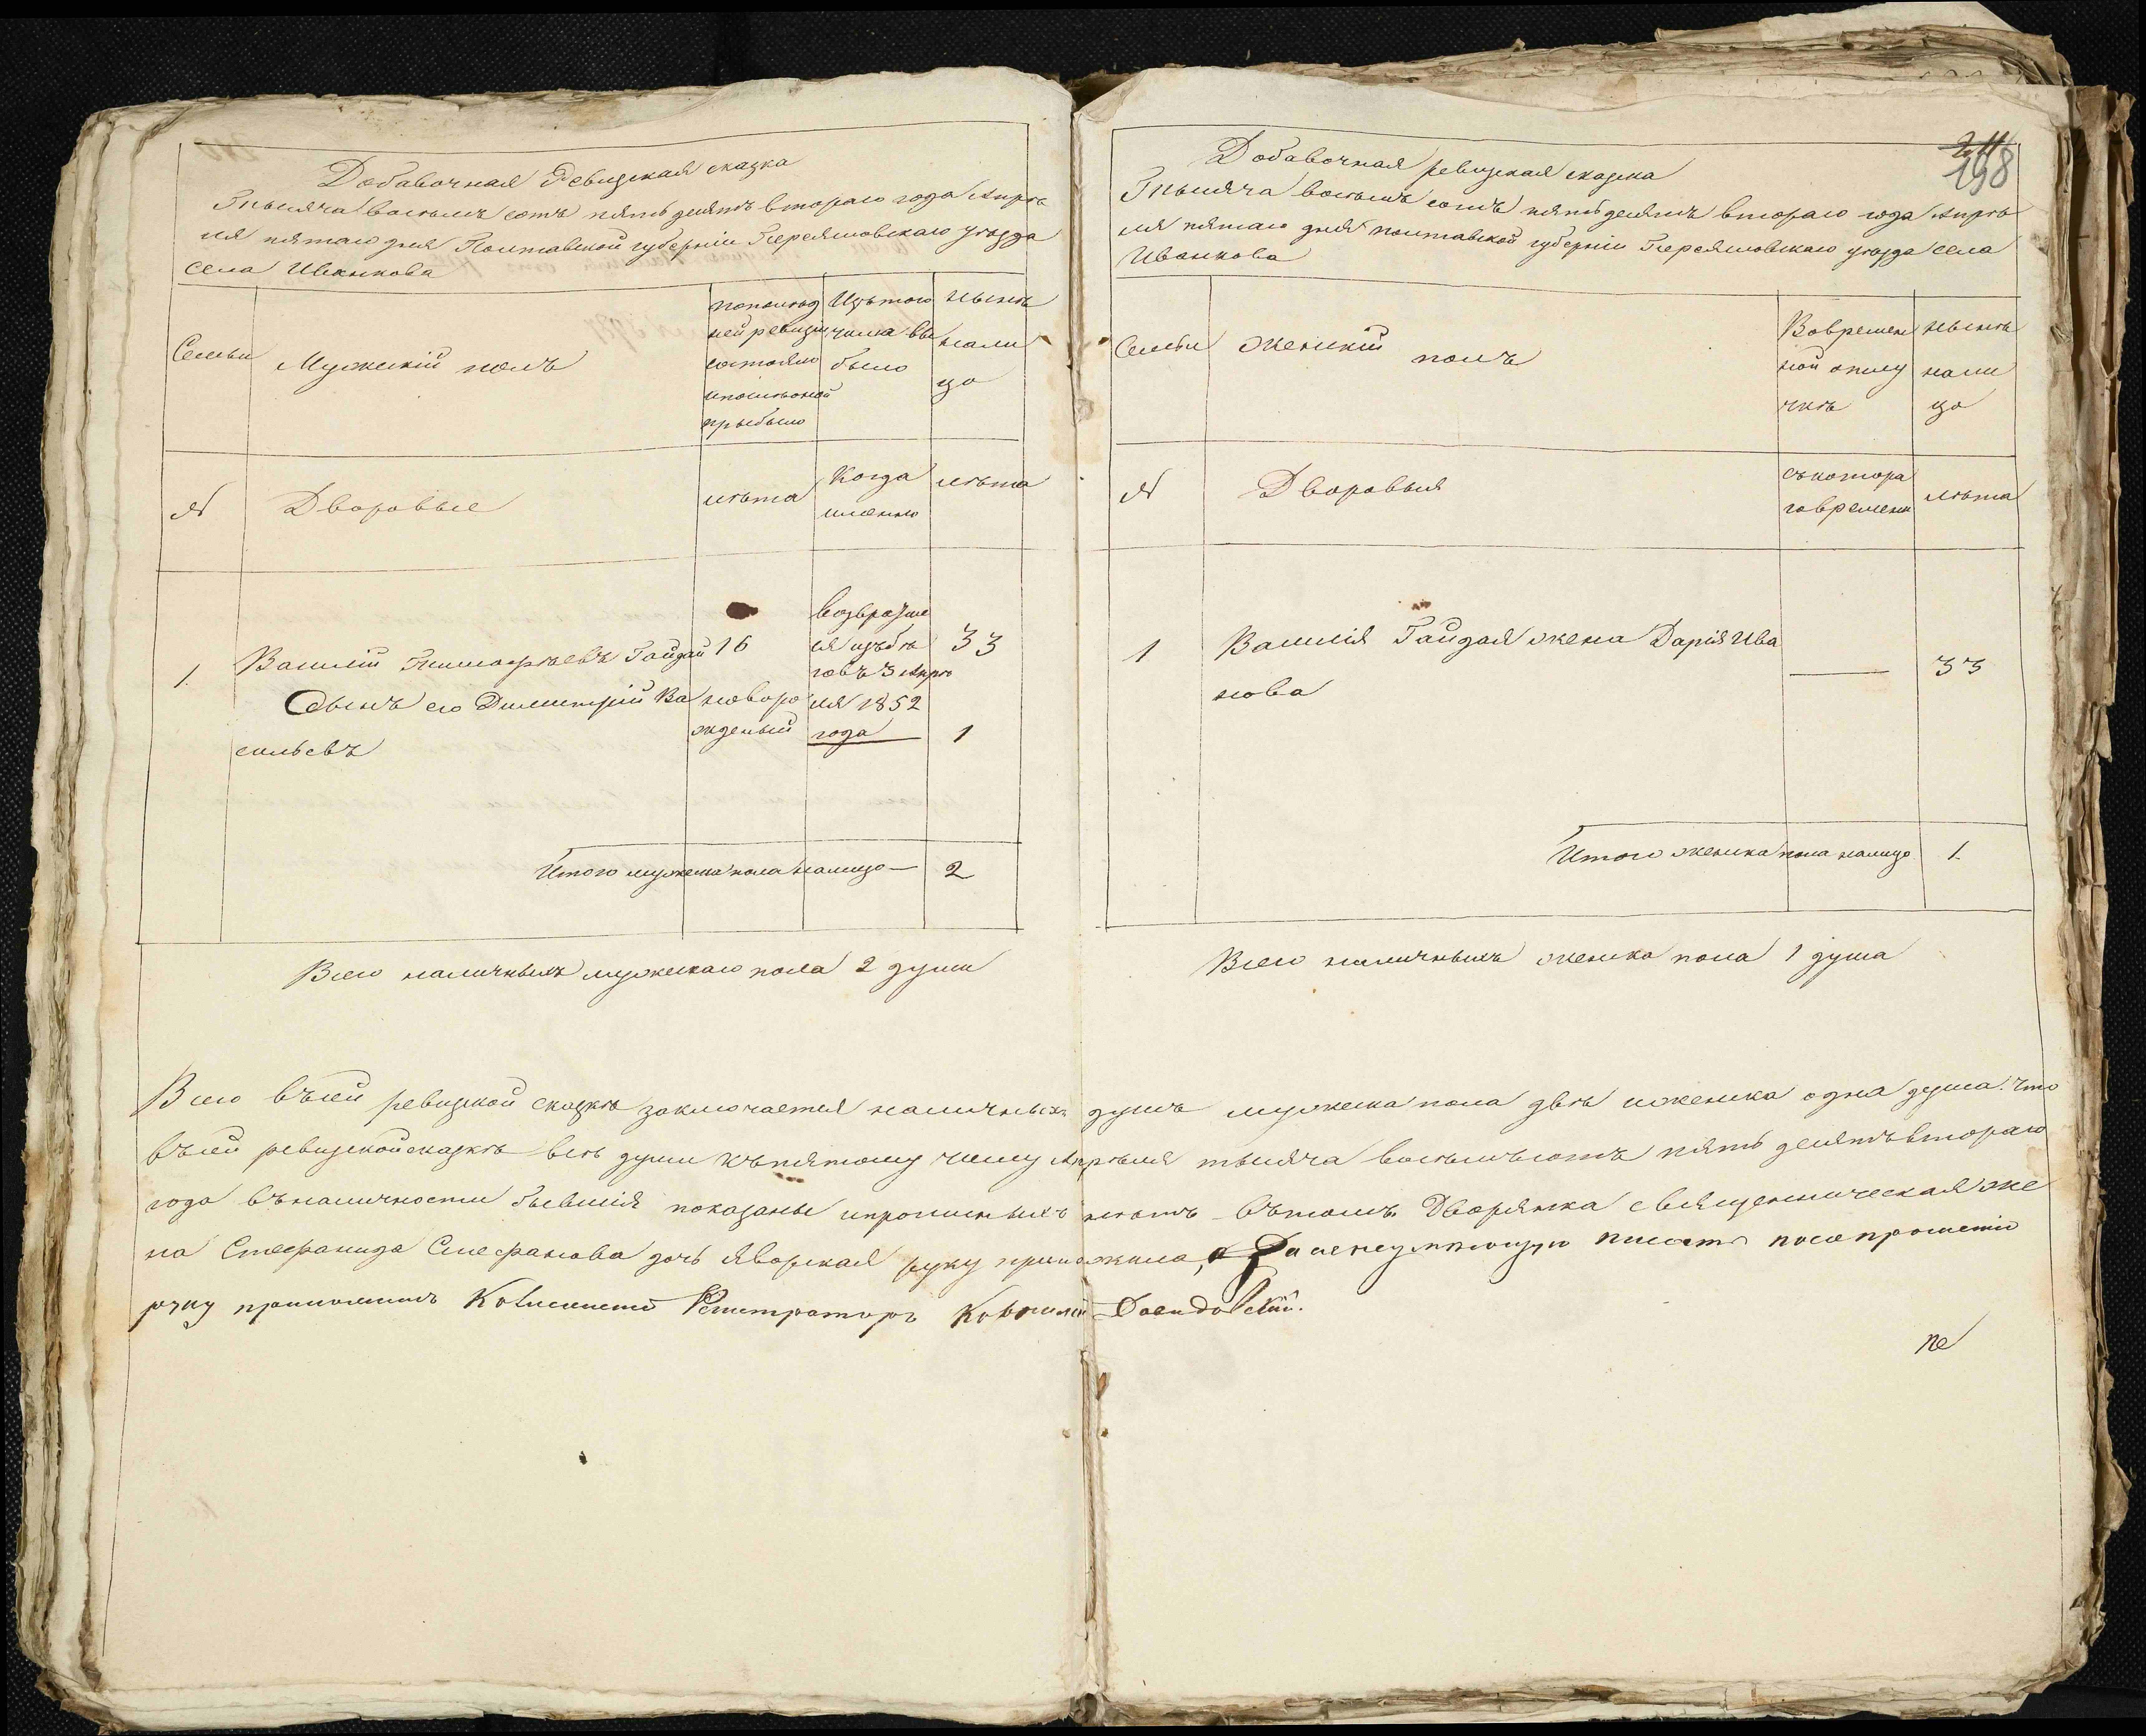 Добавочная Ревизская сказка
Тысяча восемь сотъ пять десятъ втораго года Апрѣ
ля пятаго дня Полтавской губерніи Переяловскаго уѣзда
села Иванкова
Семьи
Мужескій полъ
попослѣд
ней ревизіи
состояло
ипослѣоной
прыбыло
Изътого
числа вы
было
нынѣ
нали
цо
№
Дворовые
лѣта
Когда
именно
лѣта
1.
Василій Тимофѣевъ Гайдай
16
возвраще
ся изъбѣ
говъ 3 Апрѣ
ля 1852
года
33
Сынъ его Димитрій Ва
сильевъ
новоро
жденый
1
Итого мужеска пола налицо — 2
Всего наличныхъ мужескаго пола 2 души
211
198
Добавочная ревизская сказка
Тысяча восемь сотъ пятьдесятъ втораго года Апрѣ
ля пятаго дня полтавской губерніи Переяловскаго уѣзда села
Иванкова
Семьи
Женскій полъ
Вовремен
ной отлу
чкѣ
нынѣ
нали
цо
№
Дворовыя
съкотора
говремени
лѣта
1
Василія Гайдая жена Дарія Ива
нова
—
33
Итого женска пола налицо 1.
Всего наличныхъ женска пола 1 душа
Всего въсей ревизской сказкѣ заключается наличныхъ душъ мужеска пола двѣ иженска одна душа. Что
въсей ревизскойсказкѣ всѣ души къпятому числу Апрѣля тысяча восемьсотъ пять десятъвтораго
года въналичности бывшія показаны ипрописныхъ нетъ вътомъ Дворянка священническая же
на Стефанида Стефанова дочь Яворская руку приложила, а
писать поеепрошенію
руку приложилъ Колежский Регистраторъ Давидовский.